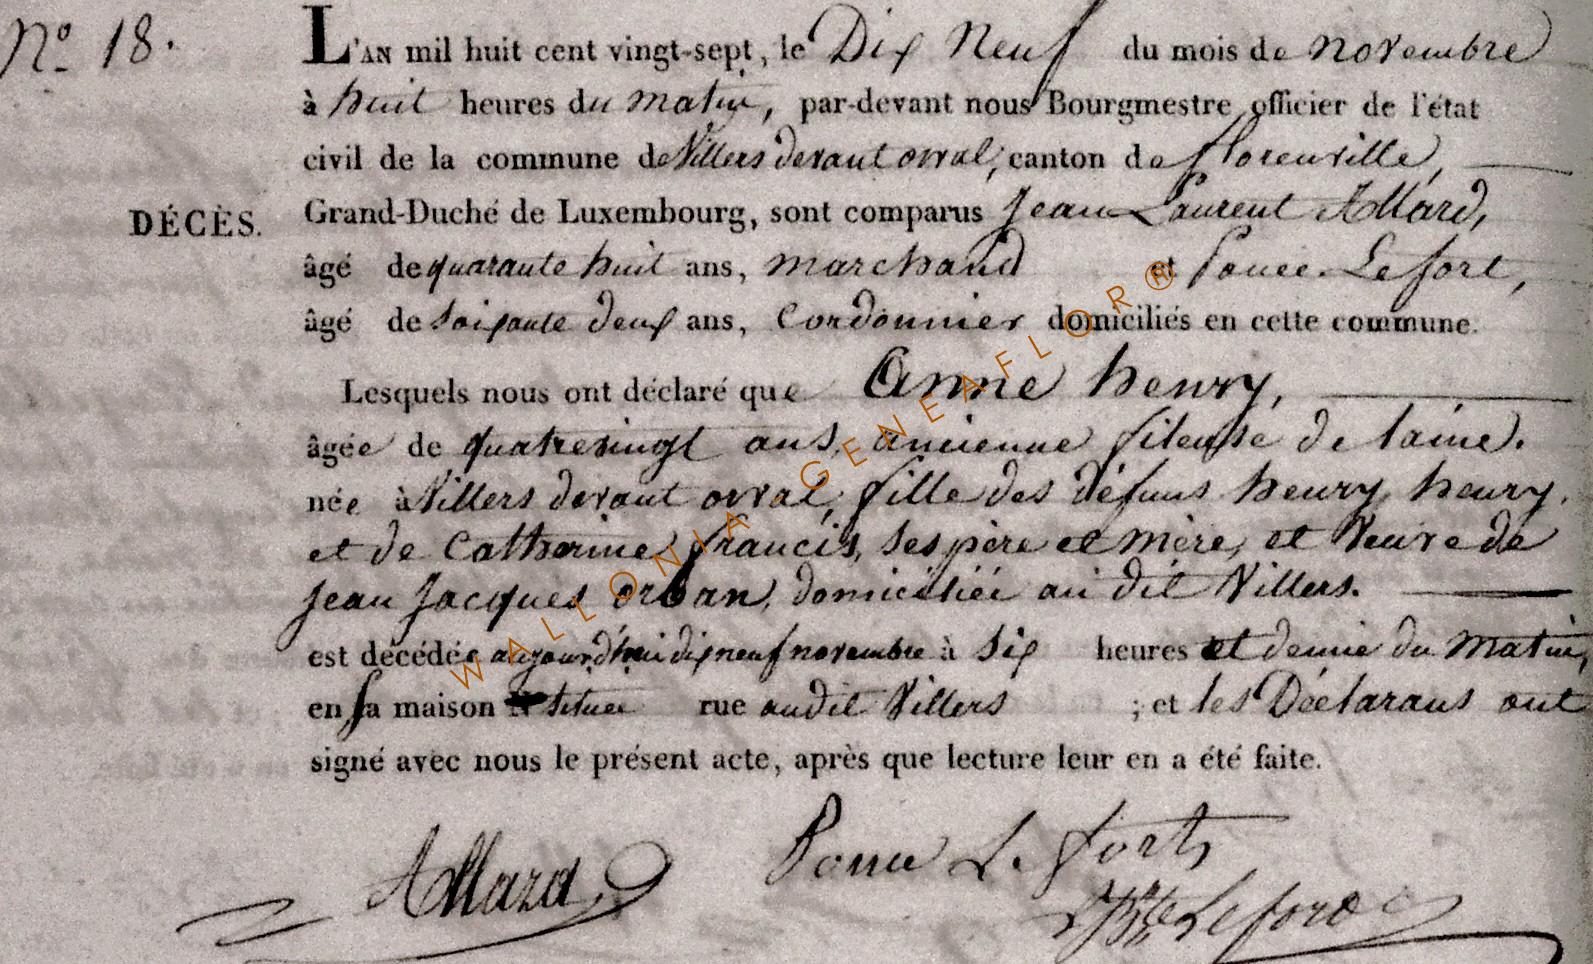 Nº 18.
L'AN mil huit cent vingt-sept, le Dix Neuf du mois de novembre
à huit heures du matin, par-devant nous Bourgmestre officier de l'état
civil de la commune de Villers devant orval, canton de florenville,
DÉCÈS.
Grand-Duché de Luxembourg, sont comparus Jean Laurent Allard,
âgé de quarante huit ans, marchand et Ponce Le fort,
âgé de soixante deux ans, Cordonnier domiciliés en cette commune.
Lesquels nous ont déclaré que Anne henry,
âgée de quatrevingt ans, ancienne fileuse de laine.
née à Villers devant orval, fille des défuns henry henry,
et de Catherine francis, ses père et mère, et Veuve de
Jean Jacques orban, domiciliée au dit Villers.
est décédée aujourd'hui dix neuf novembre à six heures et demie du matin,
en sa maison située rue audit Villers ; et les Déclarans ont
signé avec nous le présent acte, après que lecture leur en a été faite.
Allard
Ponce Le fort
Lefort
WALLONIA GENEAFLOR®